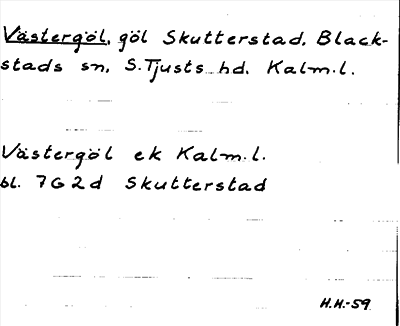 Västergöl, göl Skutterstad, Black-
stads sn, S. Tjusts hd. Kalm. l.
Västergöl ek Kalm. l.
bl. 7G2d Skutterstad
H.H.-59